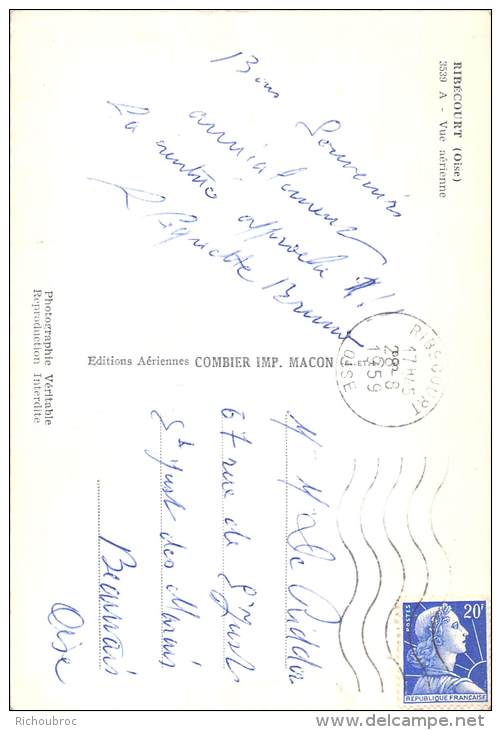 RIBÉCOURT (Oise)
3539 A - Vue aérienne
Bons Souvenirs
amicalement
La rentrée approche !!
Huguette Bruno
Photographie Véritable
Reproduction Interdite
Editions Aériennes COMBIER IMP. MACON
RIBECOURT
17H15
28-8
1959
OISE
POSTES
20F
REPUBLIQUE FRANÇAISE
M. Mme De Ridder
67 rue de St Just
St Just des Marais
Beauvais
Oise
Richoubroc
http://www.delcampe.net